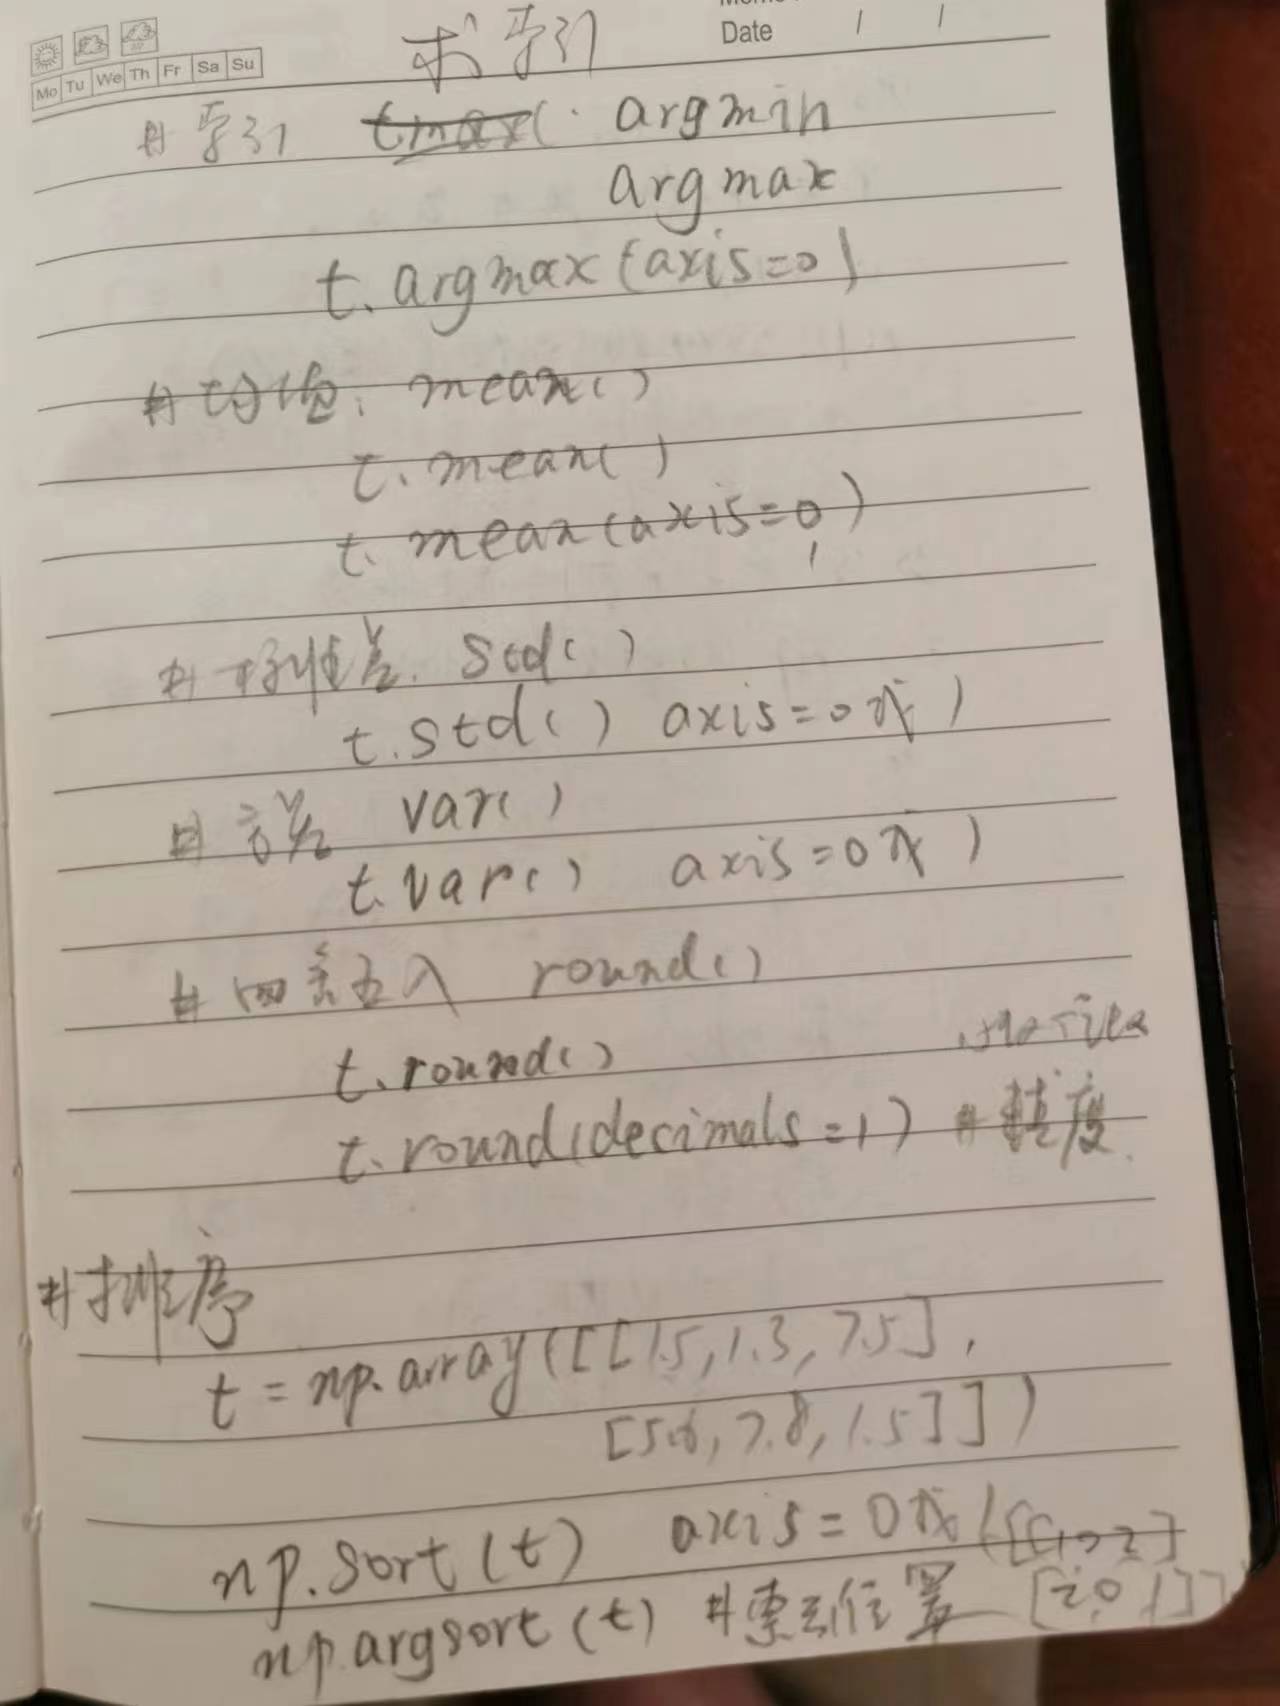 Date / /
Mo Tu We Th Fr Sa Su
求索引
# 索引 argmin
argmax
t.argmax(axis=0)
# 均值. mean()
t.mean()
t.mean(axis=0)
1
# 标准差. std()
t.std() axis=0或1)
# 方差 var()
t.var() axis=0或1)
# 四舍五入 round()
t.round()
t.round(decimals=1) # 精度.
# 排序
t = np.array([[1.5,1.3,7.5],
[5.6,7.8,1.5]])
np.sort(t) axis=0或1 ([[1,0,2]
np.argsort(t) #索引位置 [2,0,1]]